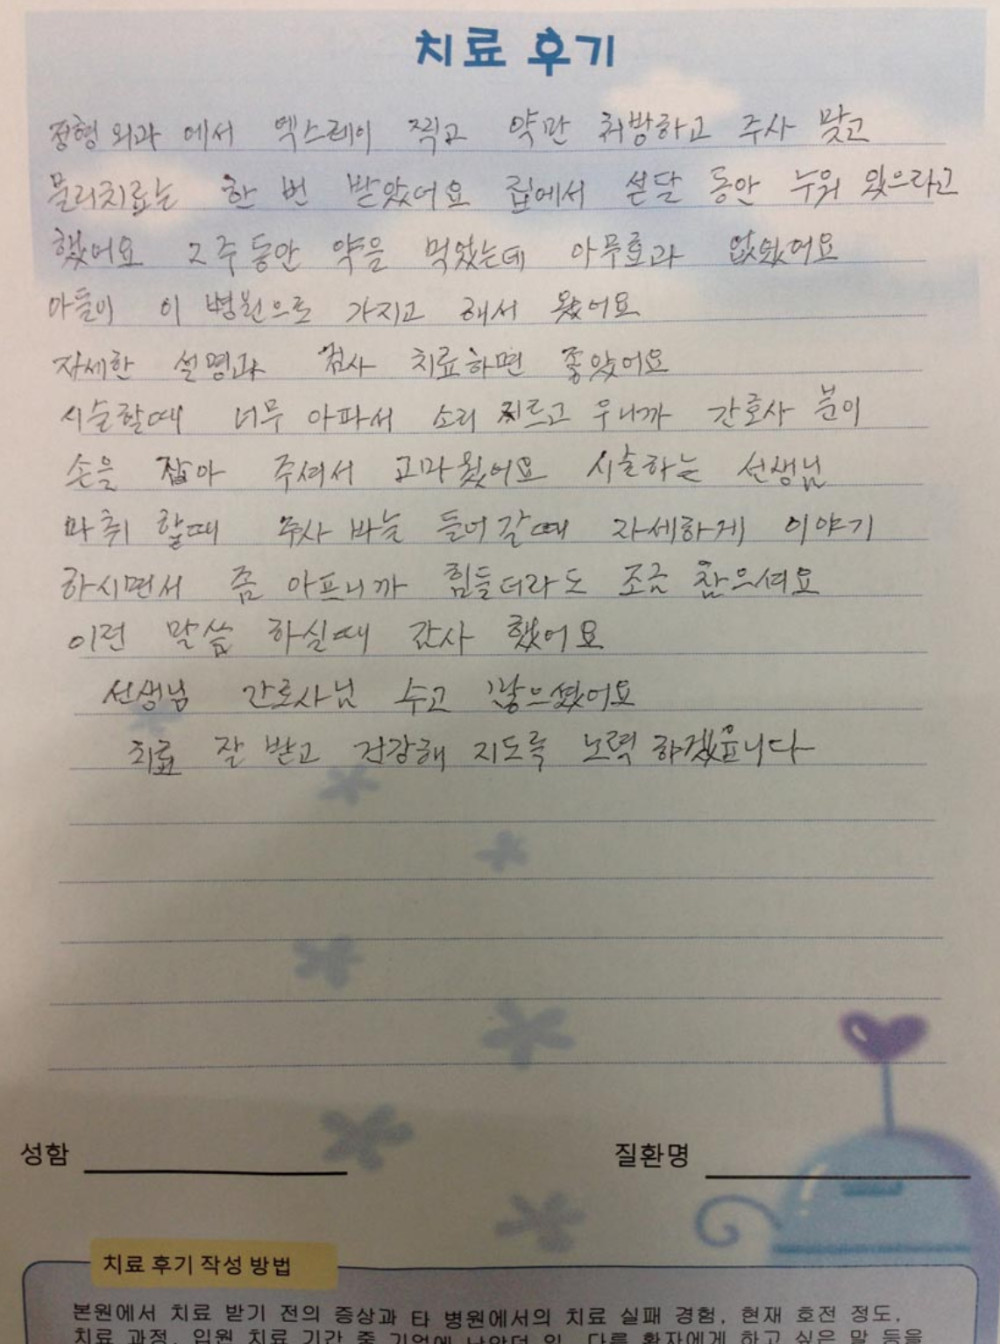 치료 후기
정형 외과 에서 엑스레이 찍고 약만 처방하고 주사 맞고
물리치료는 한 번 받았어요 집에서 석달 동안 누워 있으라고
했어요 2주동안 약을 먹었는데 아무효과 없었어요
아들이 이 병원으로 가지고 해서 왔어요
자세한 설명과 검사 치료하면 좋았어요
시술할때 너무 아파서 소리 지르고 우니까 간호사 분이
손을 잡아 주셔서 고마웠어요 시술하는 선생님
마취 할때 주사 바늘 들어갈때 자세하게 이야기
하시면서 좀 아프니까 힘들더라도 조금 참으셔요
이런 말씀 하실때 감사 했어요
선생님 간호사님 수고 많으셨어요
치료 잘 받고 건강해 지도록 노력 하겠습니다
성함 질환명
치료 후기 작성 방법
본원에서 치료 받기 전의 증상과 타 병원에서의 치료 실패 경험, 현재 호전 정도,
치료 과정, 입원 치료 기간 중 기억에 남았던 일, 다른 환자에게 하고 싶은 말 등을